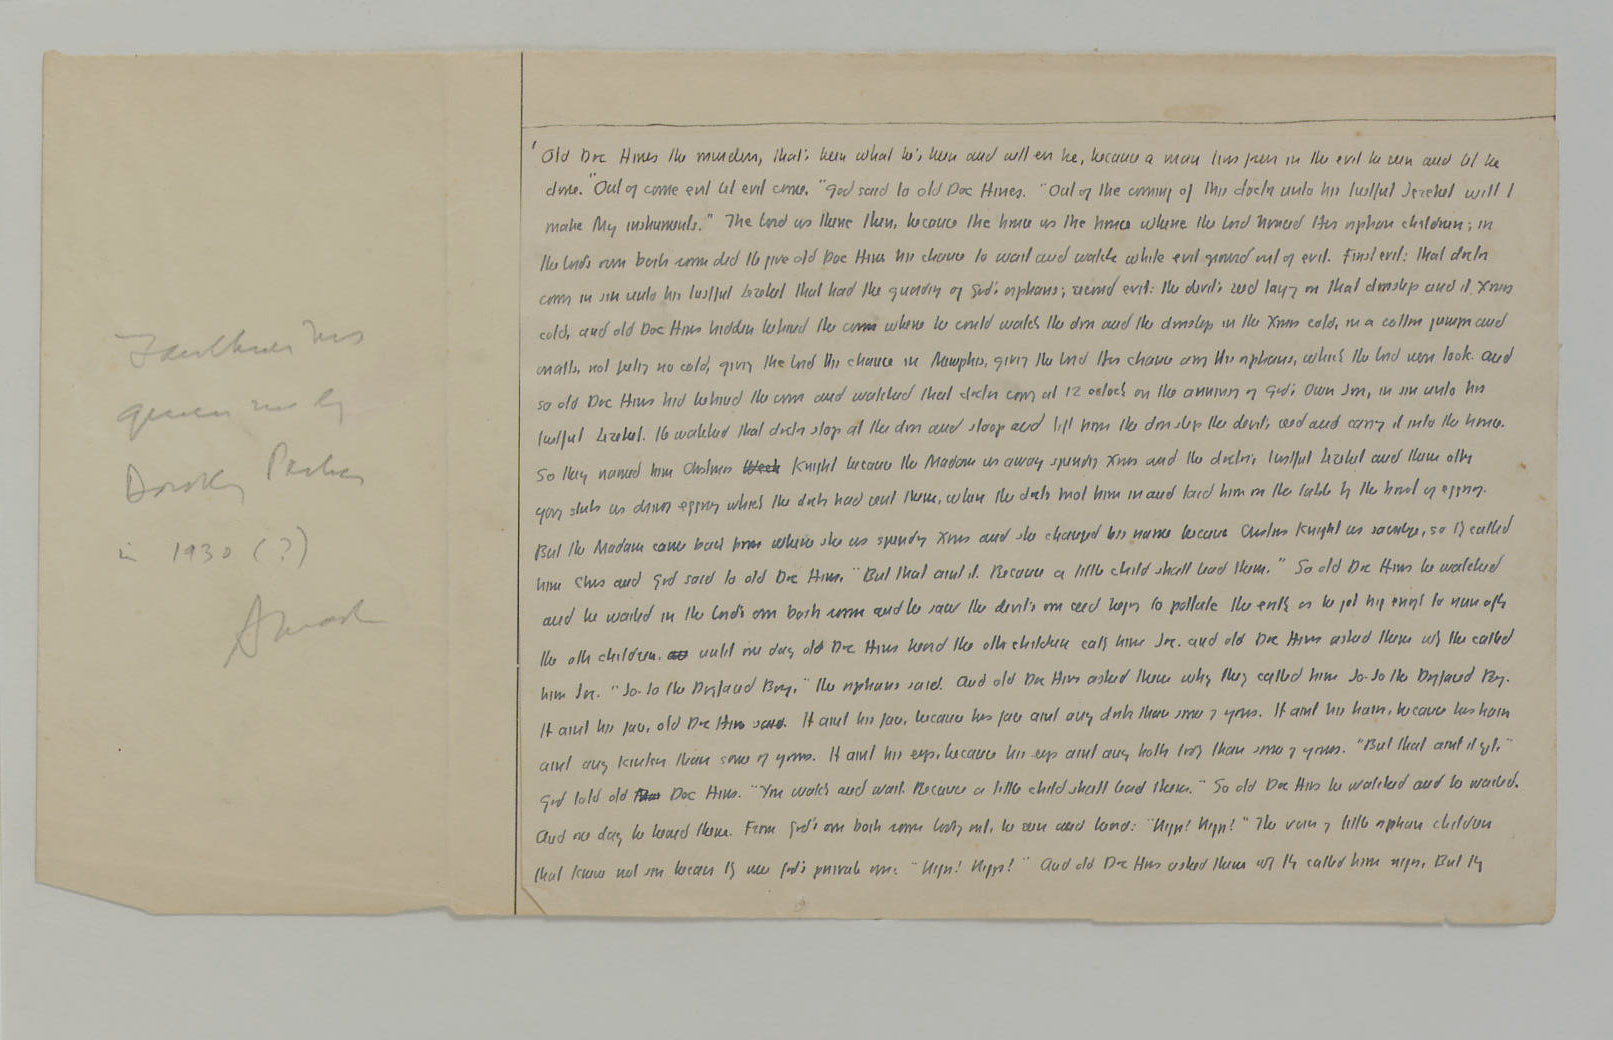 Faulkner ms
given me by
Dorothy Parker
in 1930 (?)
'Old Doc Hines the murderer, that's been what he's been and will be, because a man lives in the evil he seen and let be
done. "Out of come evil let evil come," God said to old Doc Hines. "Out of the coming of this doctor unto his lustful Jezebel will I
make My instruments." The Lord was there then, because the home was the home where the Lord homed His orphan children; in
the Lord's own boiler room did He give old Doc Hines his chance to wait and watch while evil ground out of evil. First evil: that doctor
coming in sin unto his lustful Jezebel that had the guarding of God's orphans; second evil: the devil's seed laying on that doorstep and it Xmas
cold, and old Doc Hines hidden behind the corner where he could watch the door and the doorstep in the Xmas cold, in a cotton jumper and
overalls, not feeling no cold, giving the Lord His chance in Memphis, giving the Lord His chance among His orphans, which the Lord took. And
so old Doc Hines hid behind the corner and watched that doctor coming at 12 oclock on the anniversary of God's Own Son, in sin unto his
lustful Jezebel. He watched that doctor stop at the door and stoop and lift from the doorstep the devil's seed and carry it into the home.
So they named him Christmas Week Knight because the Madam was away spending Xmas and the doctor's lustful Jezebel and them other
young sluts was drinking eggnog which the doctor had sent them, when the doctor brought him in and laid him on the table by the bowl of eggnog.
But the Madam came back from where she was spending Xmas and she changed his name because Christmas Knight was sacrilege, so they called
him Chris and God said to old Doc Hines, "But that aint it. Because a little child shall lead them." So old Doc Hines he watched
and he waited in the Lord's own boiler room and he saw the devil's own seed keeping to pollute the earth as he got big enough to run with
the other children. until one day old Doc Hines heard the other children calling him Joe. and old Doc Hines asked them why they called
him Joe. "Jo-Jo the Dogfaced Boy," the orphans said. And old Doc Hines asked them why they called him Jo-Jo the Dogfaced Boy.
It aint his face, old Doc Hines said. It aint his face, because his face aint any darker than some of yours. It aint his hair, because his hair
aint any kinkier than some of yours. It aint his eyes, because his eyes aint any both than some of yours. "But that aint it yet,"
God told old Doc Hines. "You watch and wait. Because a little child shall lead them." So old Doc Hines he watched and he waited.
And one day he heard them. From God's own boiler room looking out, he seen and heard: "Nigger! Nigger!" The voice of little orphan children
that knew not sin because they was God's private own: "Nigger! Nigger!" And old Doc Hines asked them why they called him nigger, But they